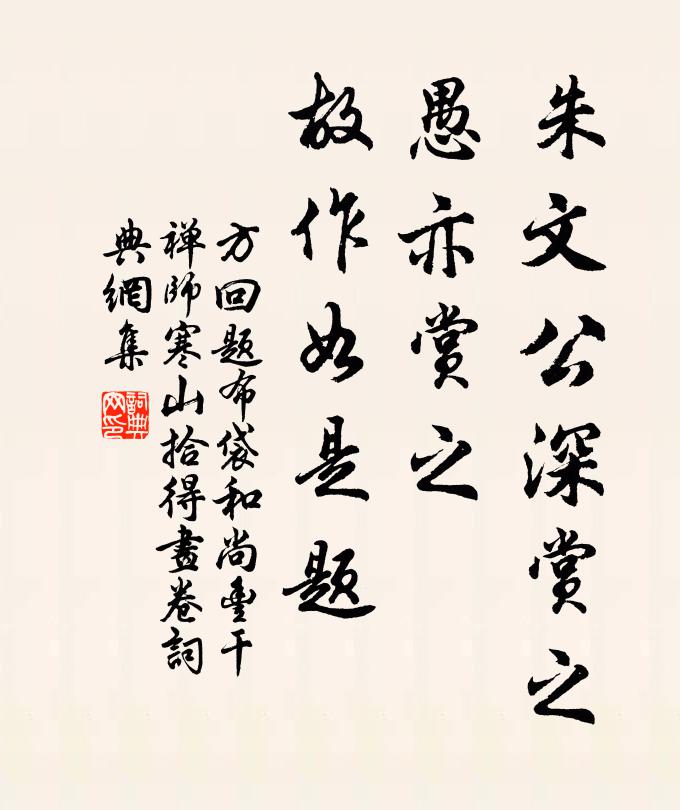 朱文公深赏之
愚亦赏之
故作如是题
方回题布袋和尚豊干
禅师寒山拾得畫卷詞
典網集
詞典
网印